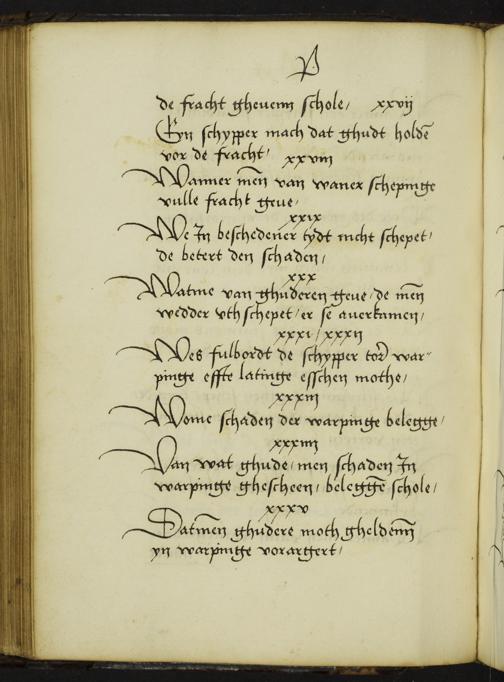 de fracht gheuenn schole, xxvij
Eyn schypper mach dat ghudt holdē
vor de fracht, xxviii
Wanner mēn van waner schepinge
vulle fracht geue,
xxix
We In beschedener tydt nicht schepet,
de betert den schaden,
xxx
Watme van ghuderen geue, de mēn
wedder vthschepet, er se auerkamen,
xxxi, xxxii
Wes fulbordt de schypper tor war-
pinge effte latinge esschen mothe,
xxxiii
Wome schaden der warpinge belegge,
xxxiiii
Van wat ghude, men schaden In
warpinge ghescheen, beleggē schole,
xxxv
Datmēn ghudere moth gheldenn
yn warpinge vorargert,